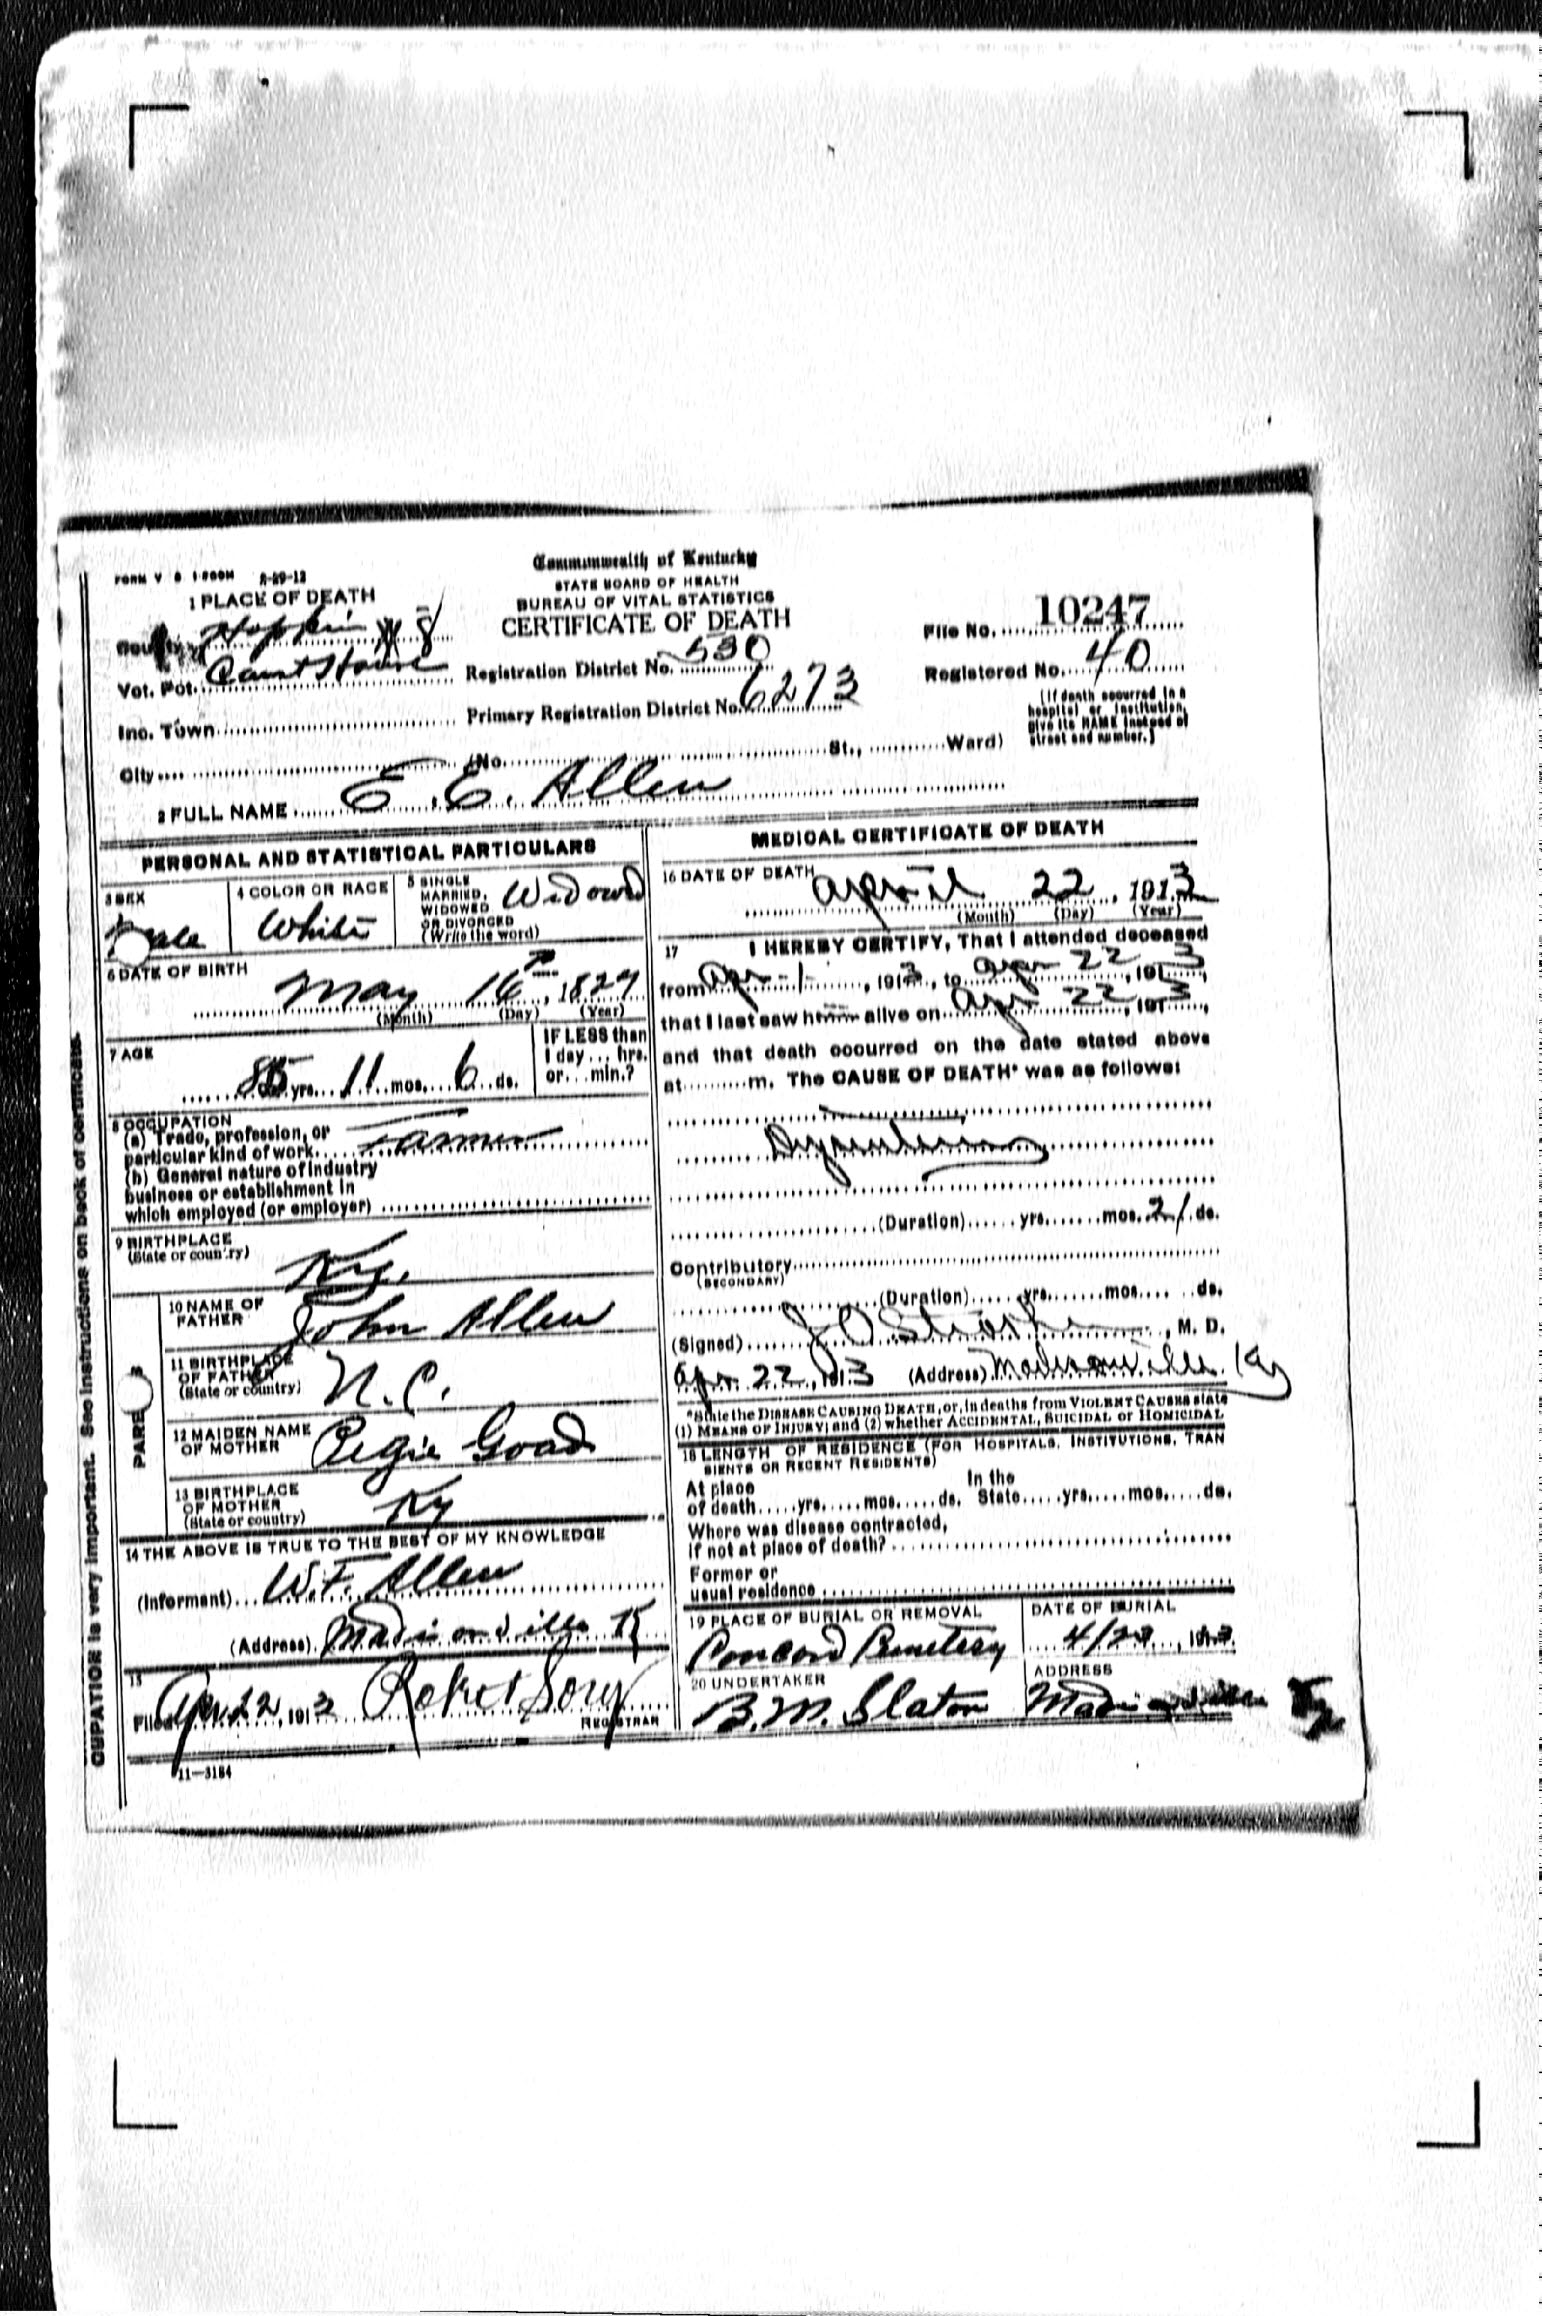 FORM V S 1-200M 2-29-12
Commonwealth of Kentucky
STATE BOARD OF HEALTH
BUREAU OF VITAL STATISTICS
CERTIFICATE OF DEATH
1 PLACE OF DEATH
County Hopkins
Vot. Pct. Court House
Inc. Town
City (No. St., Ward)
Registration District No. 530
Primary Registration District No. 6273
File No. 10247
Registered No. 40
(If death occurred in a
hospital or institution,
give its NAME instead of
street and number.)
2 FULL NAME E. E. Allen
PERSONAL AND STATISTICAL PARTICULARS
3 SEX
Male
4 COLOR OR RACE
White
5 SINGLE
MARRIED,
WIDOWED
OR DIVORCED
(Write the word)
Widowed
6 DATE OF BIRTH
May 16, 1827
(Month) (Day) (Year)
7 AGE
85 yrs. 11 mos. 6 ds.
IF LESS than
1 day ... hrs.
or ... min.?
8 OCCUPATION
(a) Trade, profession, or
particular kind of work Farmer
(b) General nature of industry
business or establishment in
which employed (or employer)
9 BIRTHPLACE
(State or country)
Ky.
PARE S
10 NAME OF
FATHER
John Allen
11 BIRTHPLACE
OF FATHER
(State or country)
N.C.
12 MAIDEN NAME
OF MOTHER
Pegie Goad
13 BIRTHPLACE
OF MOTHER
(State or country)
Ky
14 THE ABOVE IS TRUE TO THE BEST OF MY KNOWLEDGE
(Informant) W.F. Allen
(Address) Madisonville K
15
Filed Apr 22, 1913
REGISTRAR
11—3184
MEDICAL CERTIFICATE OF DEATH
16 DATE OF DEATH
April 22, 1913
(Month) (Day) (Year)
17 I HEREBY CERTIFY, That I attended deceased
from Apr 1, 1913, to Apr 22, 1913,
that I last saw h alive on Apr 22, 1913,
and that death occurred on the date stated above
at m. The CAUSE OF DEATH* was as follows:
Dysentery
(Duration) yrs. mos. 21 ds.
Contributory
(SECONDARY)
(Duration) yrs. mos. ds.
(Signed) J O , M. D.
Apr 22, 1913 (Address) Madisonville Ky
*State the DISEASE CAUSING DEATH, or, in deaths from VIOLENT CAUSES state
(1) MEANS OF INJURY; and (2) whether ACCIDENTAL, SUICIDAL or HOMICIDAL
18 LENGTH OF RESIDENCE (FOR HOSPITALS, INSTITUTIONS, TRAN
SIENTS OR RECENT RESIDENTS)
At place In the
of death yrs. mos. ds. State yrs. mos. ds.
Where was disease contracted,
If not at place of death?
Former or
usual residence
19 PLACE OF BURIAL OR REMOVAL
Concord Cemetery
DATE OF BURIAL
4/23, 1913
20 UNDERTAKER
B.M. Slaton
ADDRESS
Madisonville Ky
CUPATION is very important. See instructions on back of certificate.